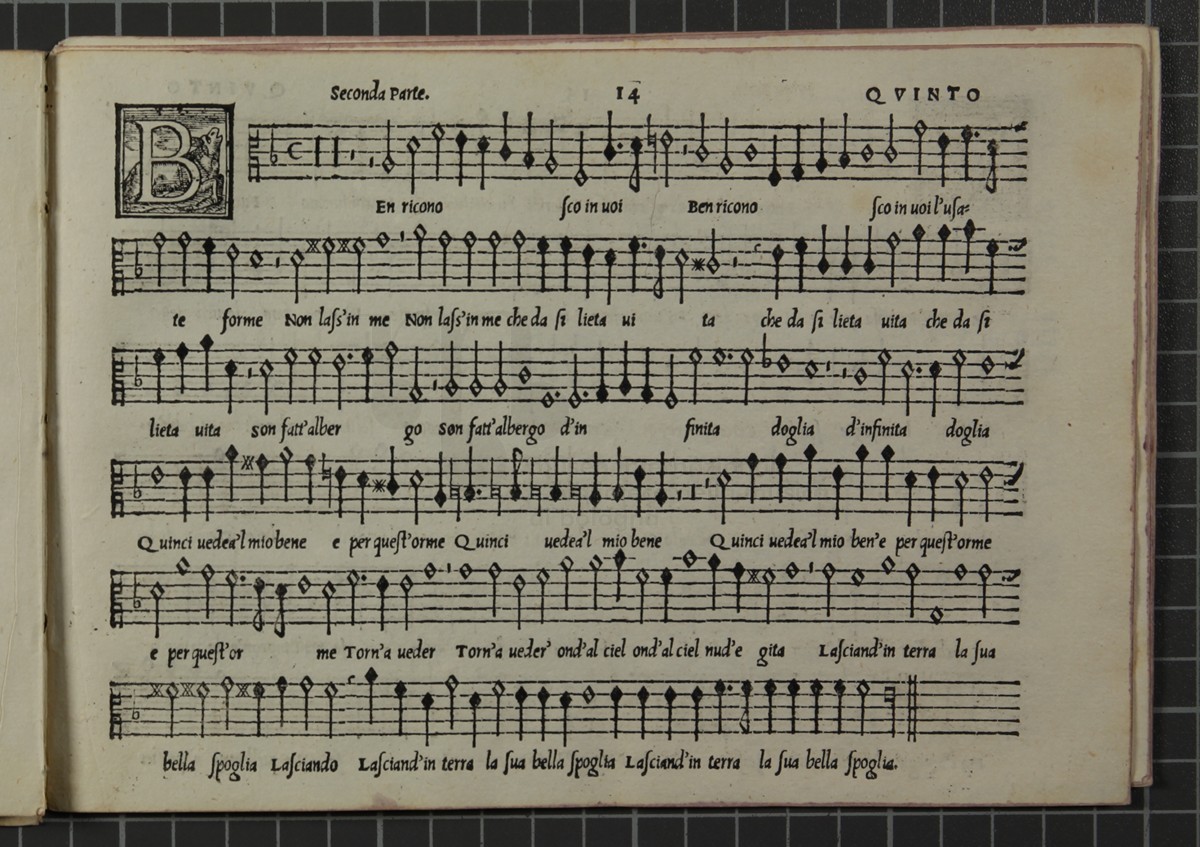 Seconda Parte. 14 QVINTO
B
En ricono ſco in uoi Ben ricono ſco in uoi l'uſa=
te forme Non laſs'in me Non laſs'in me che da ſi lieta ui ta che da ſi lieta uita che da ſi
lieta uita son fatt'alber go son fatt'albergo d'in finita doglia d'infinita doglia
Quinci uedea'l mio bene e per queſt'orme Quinci uedea'l mio bene Quinci uedea'l mio ben'e per queſt'orme
e per queſt'or me Torn'a ueder Torn'a ueder' ond'al ciel ond'al ciel nud'e gita Laſciand'in terra la ſua
bella ſpoglia Laſciando Laſciand'in terra la ſua bella ſpoglia Laſciand'in terra la ſua bella ſpoglia.